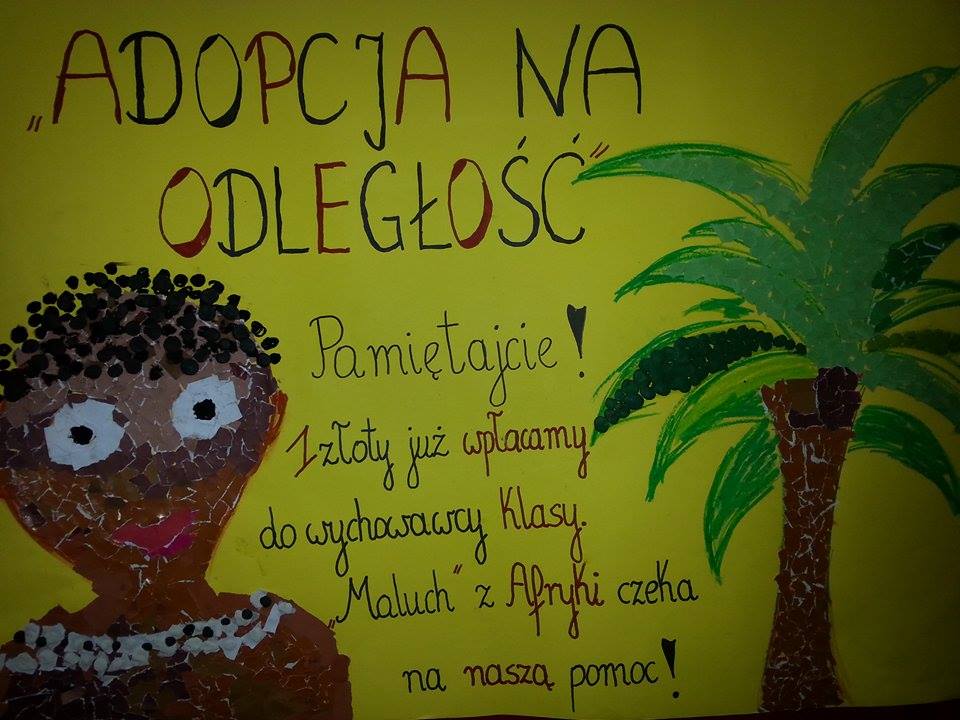 „ADOPCJA NA
ODLEGŁOŚĆ”
Pamiętajcie!
1 złoty już wpłacamy
do wychowawcy klasy.
„Maluch” z Afryki czeka
na naszą pomoc!